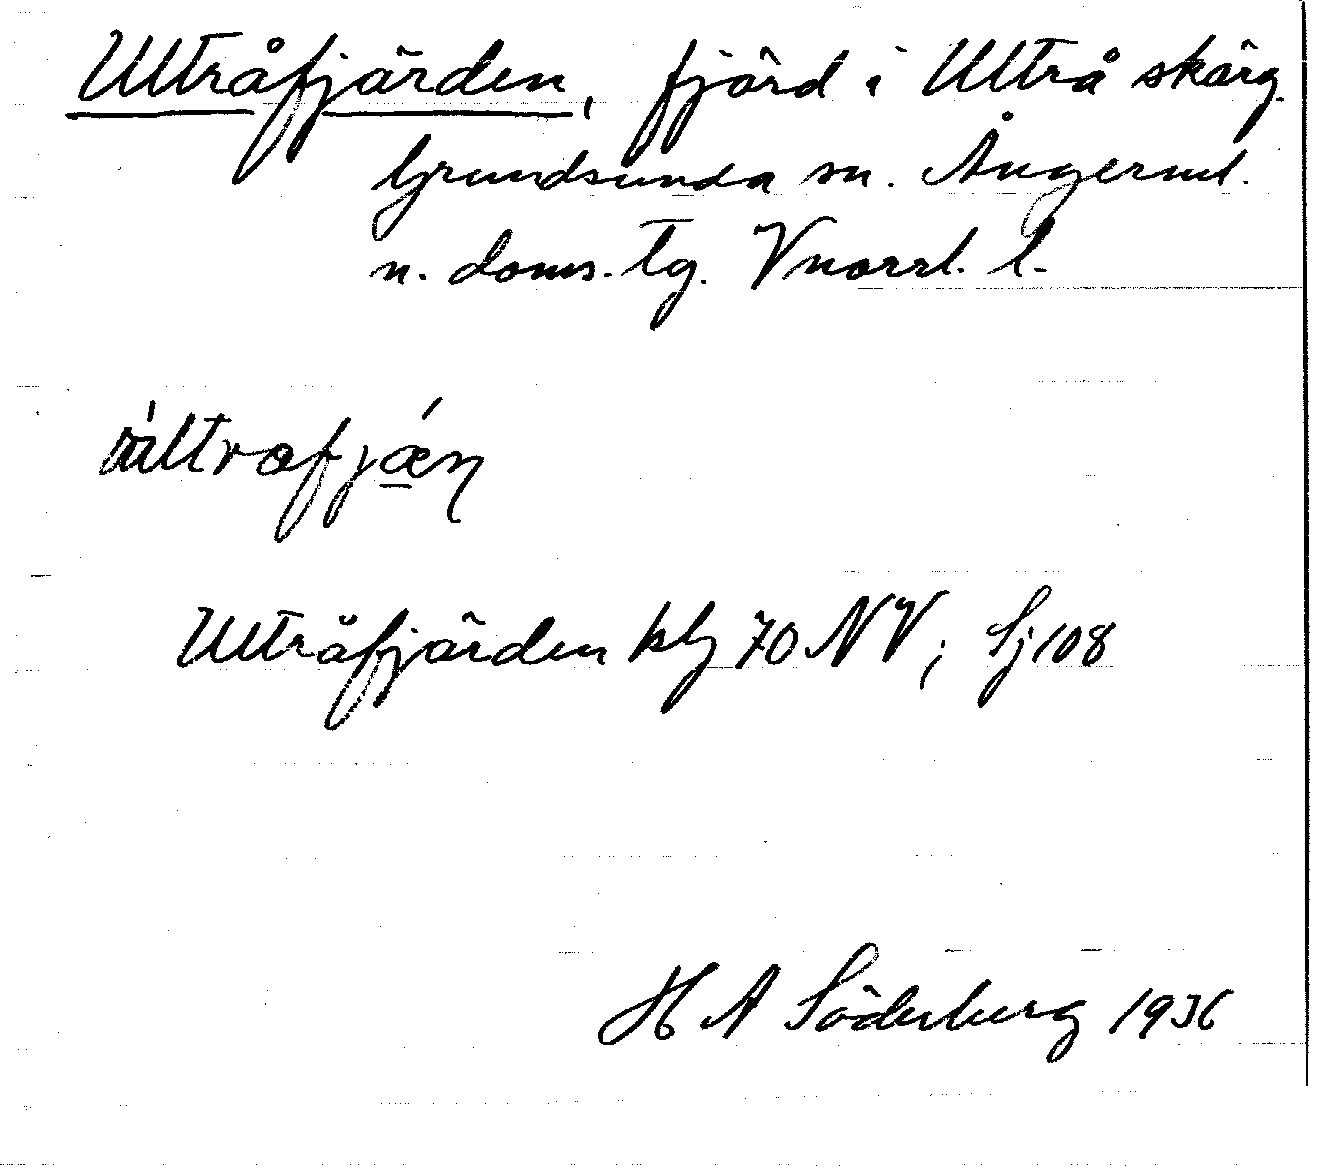 Ultråfjärden, fjärd i Ultrå skärg.
Grundsunda sn. Ångerml.
n. doms. tg. Vnorrl. l.
Ultråfjärden blg 70 NV; Sj 108
H A Söderberg 1936